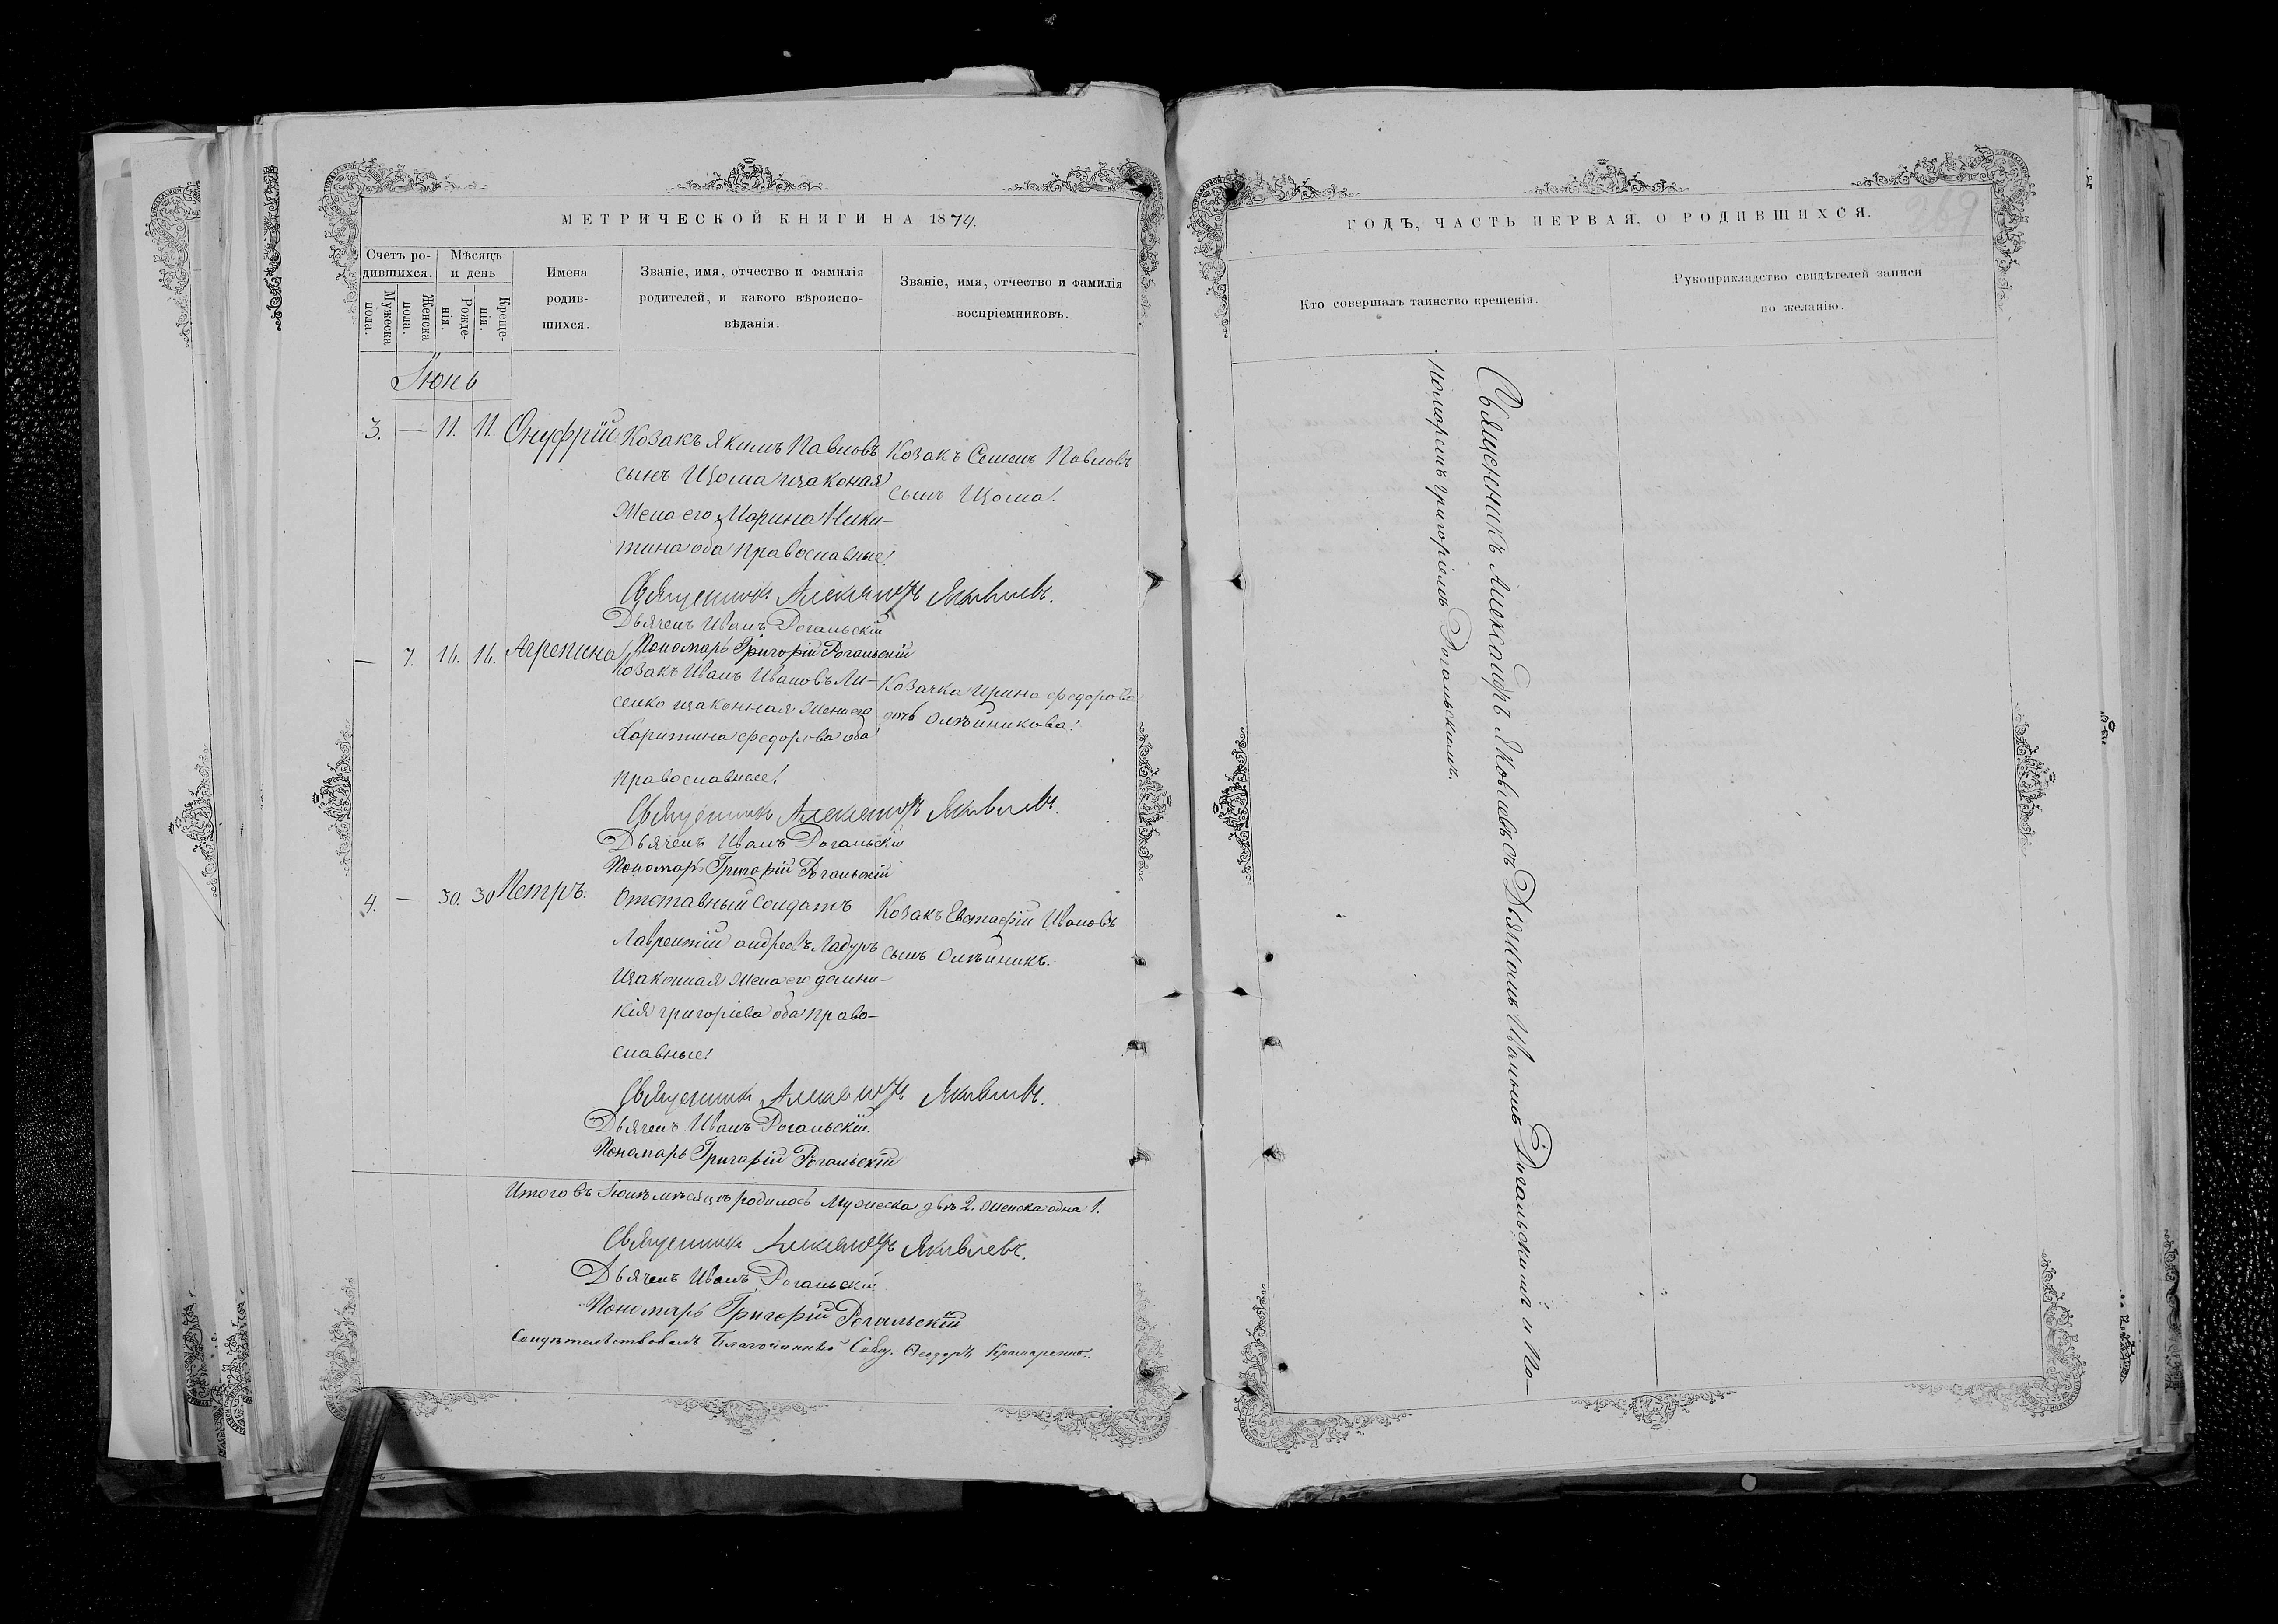 МЕТРИЧЕСКОЙ КНИГИ НА 1874.
Счетъ ро-
дившихся.
Мѣсяцъ
и день
Мужеска
пола.
Женска
пола.
Рожде-
нія.
Креще-
нія.
Имена
родив-
шихся.
Званіе, имя, отчество и фамилія
родителей, и какого вѣроиспо-
вѣданія.
Званіе, имя, отчество и фамилія
воспріемниковъ.
Іюнь
3. — 11. 11. Онуфрій
Козакъ Якимъ Павловъ
сынъ Цюма изаконая
жена его Марина Ники-
тина оба православные!
Козакъ Семенъ Павловъ
сынъ Цюма!
Священникъ Александръ Яковлевъ.
Дьячекъ Иванъ Рогальскій
Пономарь Григорій Рогальскій
— 7. 16. 16. Агрепина
Козакъ Иванъ Ивановъ Ли-
сенко изаконная жена его
Харитина федорова оба
православные!
Козачка Ирина федорова
Олѣйникова!
Священникъ Александръ Яковлевъ.
Дьячекъ Иванъ Рогальскій
Пономарь Григорій Рогальскій
4. — 30. 30 Петръ.
Отставный солдатъ
Лаврентій андреевъ
изаконная жена его домни-
кія григоріева оба право-
славные!
Козакъ Евстафій Ивановъ
сынъ Олѣйникъ.
Священникъ Александръ Яковлевъ.
Дьячекъ Иванъ Рогальскій.
Пономарь Григорій Рогальскій
Итого въ Іюнѣ мѣсяцѣ родилось Мужеска двѣ 2. женска одна 1.
Священникъ Александръ Яковлевъ.
Дьячекъ Иванъ Рогальскій
Пономарь Григорій Рогальскій
Свидѣтельствовалъ Благочинный Свящ. Ѳеодоръ Крамаренко.
ГОДЪ, ЧАСТЬ ПЕРВАЯ, О РОДИВШИХСЯ.
269
Кто совершалъ таинство крещенія.
Рукоприкладство свидѣтелей записи
по желанію.
Священникъ Александръ Яковлевъ съ Дьячкомъ Иваномъ Рогальскимъ и По-
номаремъ григоріемъ Рогальскимъ.